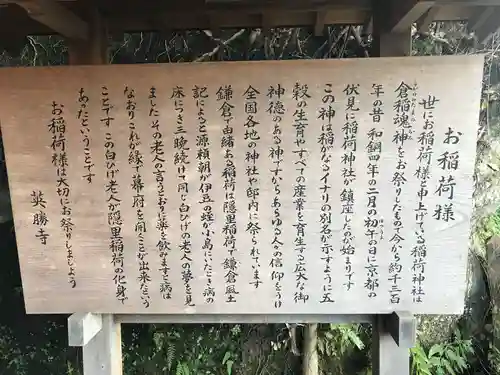 お稲荷様
世にお稲荷様と申上げている稲荷神社は
倉稲魂神をお祭りしたもので今から約千三百
年の昔 和銅四年の二月の初午の日に京都の
伏見に稲荷神社が鎮座したのが始まりです
この神は稲がなるイナリの別名が示すように五
穀の生育やすべての産業を育生する広大な御
神徳のある神ですからあらゆる人々の信仰をうけ
全国各地の神社や邸内に祭られています
鎌倉で由緒ある稲荷は隠里稲荷で鎌倉風土
記によると源頼朝が伊豆の蛭が小島にいたとき病の
床につき三晩続けて同じ白ひげの老人の夢を見
ました その老人の言うとおりに薬を飲みますと病は
なおりこれが縁で幕府を開くことが出来たという
ことです この白ひげ老人が隠里稲荷の化身で
あったということです
お稲荷様は大切にお祭りしましょう
英勝寺